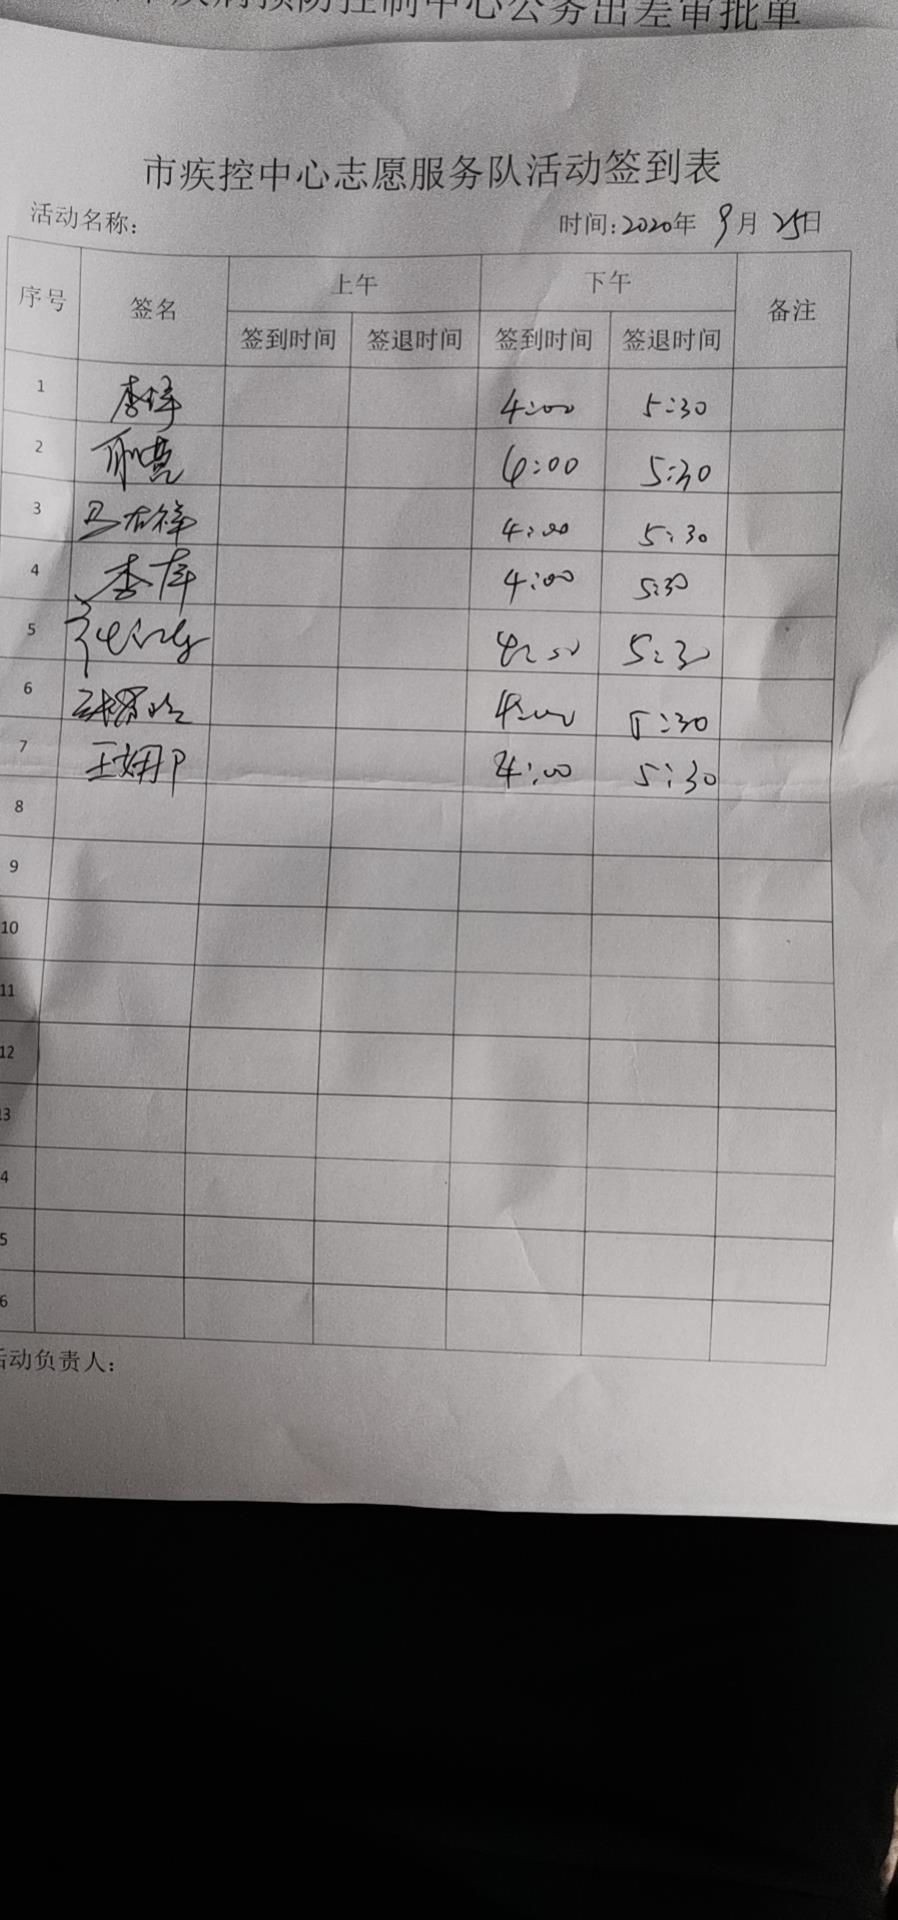 疾病预防控制中心公务出差审批单
市疾控中心志愿服务队活动签到表
活动名称: 时间:2020年 9月 25日
序号 签名 上午 下午 备注
签到时间 签退时间 签到时间 签退时间
1 4:00 5:30
2 4:00 5:30
3 4:00 5:30
4 4:00 5:30
5 4:00 5:30
6 4:00 5:30
7 4:00 5:30
8
9
10
11
12
13
4
5
6
活动负责人: